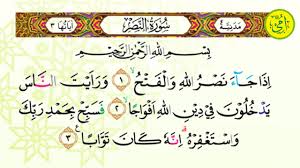 مَدَنِيَّة سُورَةُ النَّصْرِ آيَاتُهَا ٣
بِسْمِ اللهِ الرَّحْمٰنِ الرَّحِيْمِ
اِذَا جَاۤءَ نَصْرُ اللهِ وَالْفَتْحُ ١ وَرَاَيْتَ النَّاسَ
يَدْخُلُوْنَ فِيْ دِيْنِ اللهِ اَفْوَاجًا ٢ فَسَبِّحْ بِحَمْدِ رَبِّكَ
وَاسْتَغْفِرْهُ اِنَّهٗ كَانَ تَوَّابًا ٣